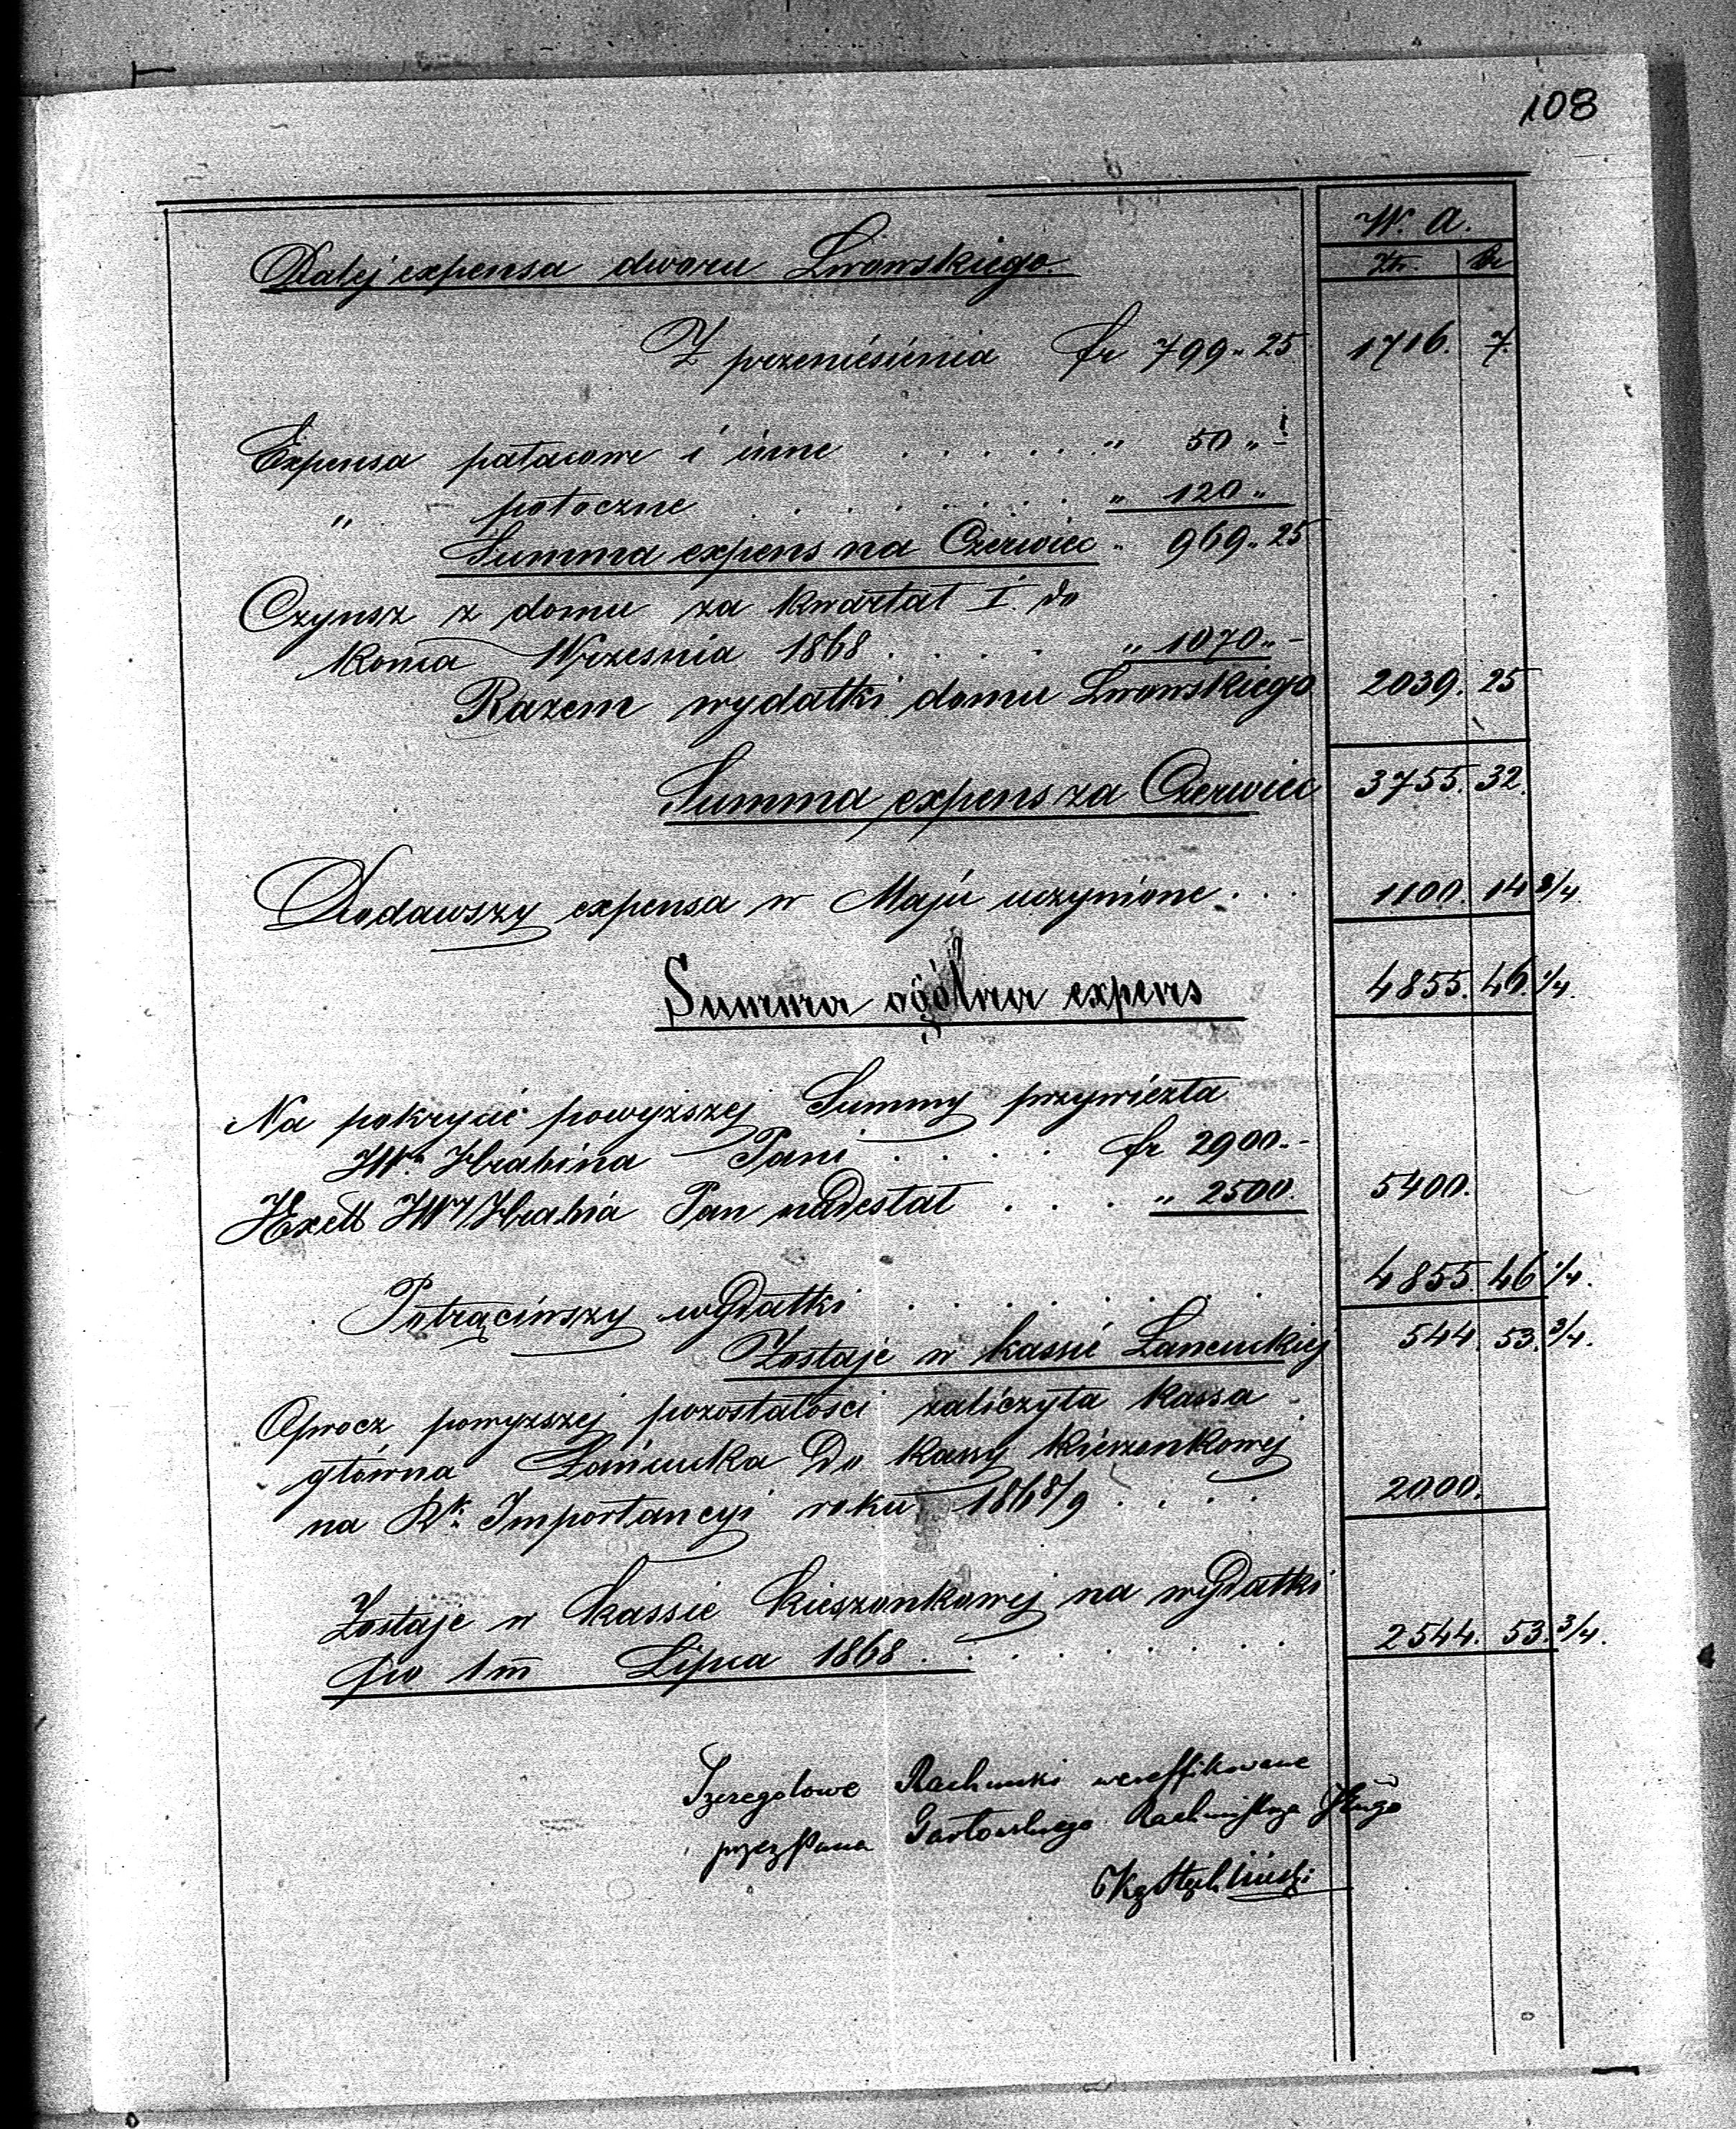 108
W. a.
Zr. Cr
Dalej expensa dworu Lwowskiego.
Z przeniesienia fr 799 „ 25 1716. 7.
Expensa pałacowe i inne . . . . . „ 50 „ -
„ potoczne . . . . . . . „ 120 „
Summa expens na Czerwiec „ 969 „ 25
Czynsz z domu za kwartał I. do
końca Września 1868 . . . . „ 1070 „ -
Razem wydatki domu Lwowskiego 2039. 25
Summa expens za Czerwiec 3755. 32.
Dodawszy expensa w Maju uczynione . . . 1100. 14 3/4
Summa ogólna expens 4855. 46. 1/4.
Na pokrycie powyższej Summy przywiezła
JW. Hrabina Pani . . . . fr 2900 -
JExell JWy Hrabia Pan nadesłał . . . „ 2500. 5400.
Potrąciwszy wydatki . . . . . . . 4855. 46 1/4.
Zostaje w kassie Łancuckiej 544. 53. 3/4.
Oprocz powyższej pozostałości zaliczyła kassa
główna Łańcucka do kassy kieszonkowej
na Rk. Importancyi roku 1868/9 . . . . 2000.
Zostaje w kassie kieszonkowej na wydatki
po 1m Lipca 1868 . . . . . . . . 2544. 53. 3/4.
Szczegolowe Rachunki wereffikowane
przez Pana Rachmistrza